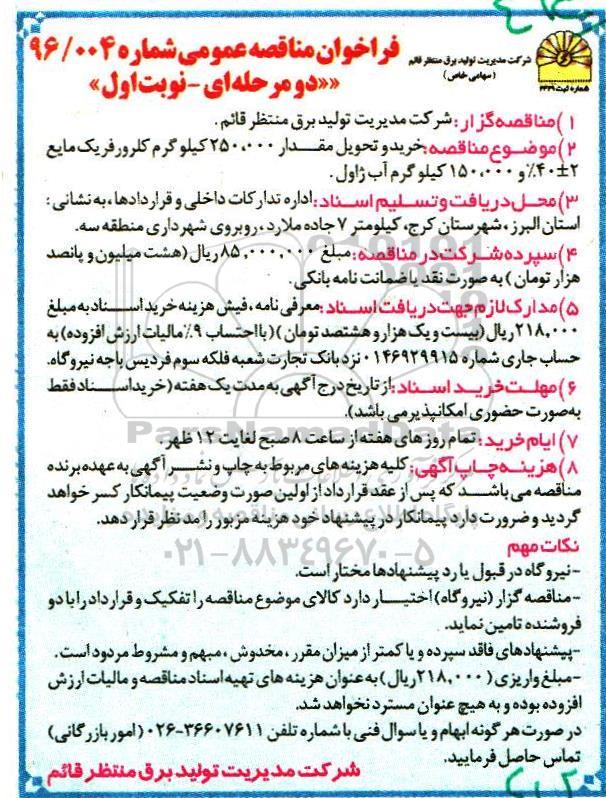 شرکت مدیریت تولید برق منتظر قائم
(سهامی خاص)
شماره ثبت ۴۴۲۹
فراخوان مناقصه عمومی شماره ۹۶/۰۰۴
««دو مرحله‌ای - نوبت اول»
۱)مناقصه گزار: شرکت مدیریت تولید برق منتظر قائم .
۲)موضوع مناقصه: خرید و تحویل مقدار ۲۵۰,۰۰۰ کیلو گرم کلرورفریک مایع
۴۰±۲٪ و ۱۵۰,۰۰۰ کیلو گرم آب ژاول .
۳)محل دریافت و تسلیم اسناد: اداره تدارکات داخلی و قراردادها، به نشانی :
استان البرز ، شهرستان کرج، کیلومتر ۷ جاده ملارد ، روبروی شهرداری منطقه سه.
۴)سپرده شرکت در مناقصه: مبلغ ۸۵,۰۰۰,۰۰۰ ریال (هشت میلیون و پانصد
هزار تومان ) به صورت نقد یا ضمانت نامه بانکی .
۵)مدارک لازم جهت دریافت اسناد: معرفی نامه ، فیش هزینه خرید اسناد به مبلغ
۲۱۸,۰۰۰ ریال (بیست و یک هزار و هشتصد تومان ) (با احتساب ۹٪ مالیات ارزش افزوده) به
حساب جاری شماره ۰۱۴۶۹۲۹۹۱۵ نزد بانک تجارت شعبه فلکه سوم فردیس با جه نیروگاه.
۶)مهلت خرید اسناد: از تاریخ درج آگهی به مدت یک هفته (خرید اسناد فقط
به صورت حضوری امکانپذیر می باشد).
۷)ایام خرید: تمام روز های هفته از ساعت ۸ صبح لغایت ۱۲ ظهر .
۸)هزینه چاپ آگهی: کلیه هزینه های مربوط به چاپ و نشر آگهی به عهده برنده
مناقصه می باشد که پس از عقد قرارداد از اولین صورت وضعیت پیمانکار کسر خواهد
گردید و ضرورت دارد پیمانکار در پیشنهاد خود هزینه مزبور را مد نظر قرار دهد.
نکات مهم
-نیروگاه در قبول یا رد پیشنهادها مختار است.
-مناقصه گزار (نیروگاه) اختیار دارد کالای موضوع مناقصه را تفکیک و قرارداد را با دو
فروشنده تامین نماید.
-پیشنهادهای فاقد سپرده و یا کمتر از میزان مقرر ، مخدوش ، مبهم و مشروط مردود است .
-مبلغ واریزی (۲۱۸,۰۰۰ ریال) به عنوان هزینه های تهیه اسناد مناقصه و مالیات ارزش
افزوده بوده و به هیچ عنوان مسترد نخواهد شد.
در صورت هر گونه ابهام و یا سوال فنی با شماره تلفن ۳۶۶۰۷۶۱۱-۰۲۶ (امور بازرگانی)
تماس حاصل فرمایید.
شرکت مدیریت تولید برق منتظر قائم
ParsNamadData
۰۲۱-۸۸۳۴۹۶۷۰-۵